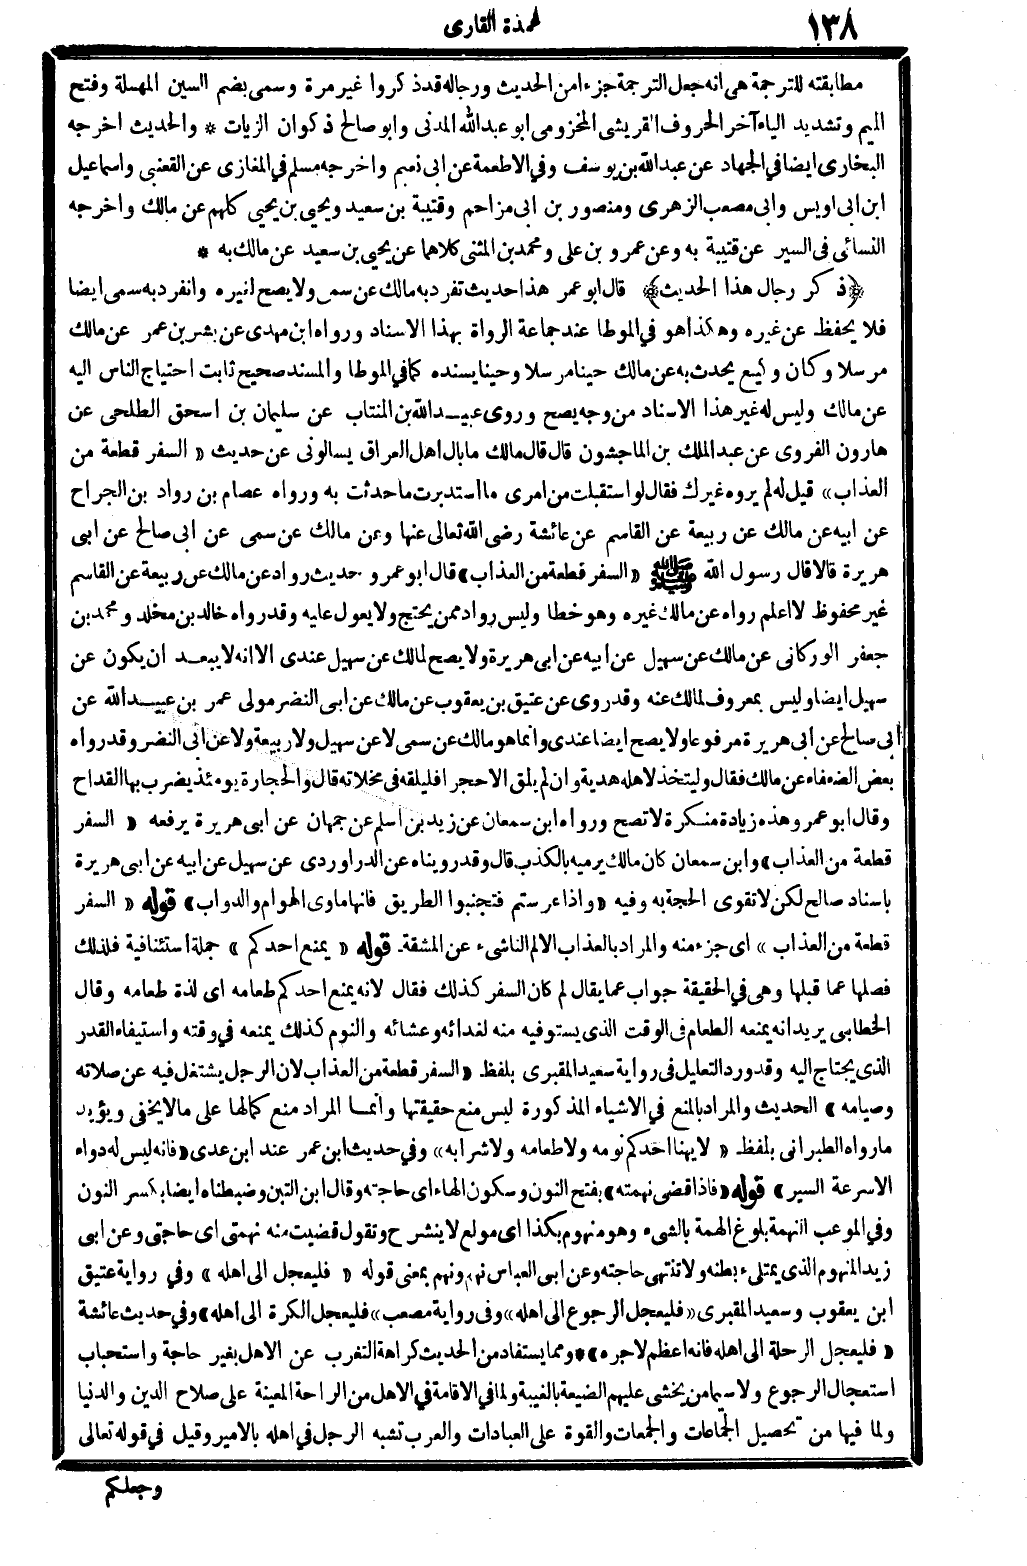 ١٣٨
عمدة القارى
مطابقته للترجمة هى انه جعل الترجمة جزءا من الحديث ورجاله قد ذكروا غير مرة وسمى بضم السين المهملة وفتح
الميم وتشديد الياء آخر الحروف القريشى المخزومى ابو عبدالله المدنى وابو صالح ذكوان الزيات * والحديث اخرجه
البخارى ايضا في الجهاد عن عبدالله بن يوسف وفي الاطعمة عن ابى نعيم واخرجه مسلم في المغازى عن القعنبى واسماعيل
ابن ابى اويس وابى مصعب الزهرى ومنصور بن ابى مزاحم وقتيبة بن سعيد ويحيى بن يحيى كلهم عن مالك واخرجه
النسائى فى السير عن قتيبة به وعن عمرو بن على ومحمد بن المثنى كلاهما عن يحيى بن سعيد عن مالك به *
﴿ذكر رجال هذا الحديث﴾ قال ابو عمر هذا حديث تفرد به مالك عن سمى ولا يصح لغيره وانفرد به سمى ايضا
فلا يحفظ عن غيره وهكذا هو في الموطا عند جماعة الرواة بهذا الاسناد ورواه ابن مهدى عن بشر بن عمر عن مالك
مرسلا وكان وكيع يحدث به عن مالك حينا مرسلا وحينا يسنده كما في الموطا والمسند صحيح ثابت احتياج الناس اليه
عن مالك وليس له غير هذا الاسناد من وجه يصح وروى عبيد الله بن المنتاب عن سليمان بن اسحق الطلحى عن
هارون الفروى عن عبد الملك بن الماجشون قال قال مالك ما بال اهل العراق يسالونى عن حديث « السفر قطعة من
العذاب» قيل له لم يروه غيرك فقال لو استقبلت من امرى ما استدبرت ما حدثت به ورواه عصام بن رواد بن الجراح
عن ابيه عن مالك عن ربيعة عن القاسم عن عائشة رضى الله تعالى عنها وعن مالك عن سمى عن ابى صالح عن ابى
هريرة قالا قال رسول الله ﷺ «السفر قطعة من العذاب» قال ابو عمرو حديث رواد عن مالك عن ربيعة عن القاسم
غير محفوظ لا اعلم رواه عن مالك غيره وهو خطا وليس رواد ممن يحتج ولا يعول عليه وقد رواه خالد بن مخلد ومحمد بن
جعفر الوركانى عن مالك عن سهيل عن ابيه عن ابى هريرة ولا يصح لمالك عن سهيل عندى الا انه لا يبعد ان يكون عن
سهيل ايضا وليس بمعروف لمالك عنه وقد روى عن عتيق بن يعقوب عن مالك عن ابى النضر مولى عمر بن عبيد الله عن
أبى صالح عن ابى هريرة مرفوعا ولا يصح ايضا عندى وانما هو مالك عن سمى لا عن سهيل ولا ربيعة ولا عن ابى النضر وقد رواه
بعض الضعفاء عن مالك فقال وليتخذ لاهله هدية وان لم يلق الا حجرا فليلقه في مخلاته قال والحجارة يومئذ يضرب بها القداح
وقال ابو عمر وهذه زيادة منكرة لا تصح ورواه ابن سمعان عن زيد بن اسلم عن جمهان عن ابى هريرة يرفعه « السفر
قطعة من العذاب» وابن سمعان كان مالك يرميه بالكذب قال وقد رويناه عن الدراوردى عن سهيل عن ابيه عن ابى هريرة
باسناد صالح لكن لا تقوى الحجة به وفيه «واذا عرستم فتجنبوا الطريق فانها ماوى الهوام والدواب» قوله « السفر
قطعة من العذاب » اى جزء منه والمراد بالعذاب الالم الناشىء عن المشقة. قوله « يمنع احدكم » جملة استئنافية فلذلك
فصلها عما قبلها وهى في الحقيقة جواب عما يقال لم كان السفر كذلك فقال لانه يمنع احدكم طعامه اى لذة طعامه وقال
الخطابى يريد انه يمنعه الطعام فى الوقت الذى يستوفيه منه لغدائه وعشائه والنوم كذلك يمنعه في وقته واستيفاء القدر
الذى يحتاج اليه وقد ورد التعليل فى رواية سعيد المقبرى بلفظ «السفر قطعة من العذاب لان الرجل يشتغل فيه عن صلاته
وصيامه » الحديث والمراد بالمنع في الاشياء المذكورة ليس منع حقيقتها وانما المراد منع كمالها على ما لا يخفى ويؤيد
ما رواه الطبرانى بلفظ « لا يهنا احدكم نومه ولا طعامه ولا شرابه» وفي حديث ابن عمر عند ابن عدى «فانه ليس له دواء
الا سرعة السير» قوله «فاذا قضى نهمته» بفتح النون وسكون الهاء اى حاجته وقال ابن التين وضبطناه ايضا بكسر النون
وفي الموعب النهمة بلوغ الهمة بالشىء وهو منهوم بكذا اى مولع لا ينشرح وتقول قضيت منه نهمتى اى حاجتى وعن ابى
زيد المنهوم الذى يمتلىء بطنه ولا تنتهى حاجته وعن ابى العباس نهم ونهم بمعنى قوله « فليعجل الى اهله » وفي رواية عتيق
ابن يعقوب وسعيد المقبرى «فليعجل الرجوع الى اهله» وفى رواية مصعب «فليعجل الكرة الى اهله» وفي حديث عائشة
« فليعجل الرحلة الى اهله فانه اعظم لاجره » * ومما يستفاد من الحديث كراهة التغرب عن الاهل بغير حاجة واستحباب
استعجال الرجوع ولا سيما من يخشى عليهم الضيعة بالغيبة ولما في الاقامة في الاهل من الراحة المعينة على صلاح الدين والدنيا
ولما فيها من تحصيل الجماعات والجمعات والقوة على العبادات والعرب تشبه الرجل في اهله بالامير وقيل في قوله تعالى
وجعلكم